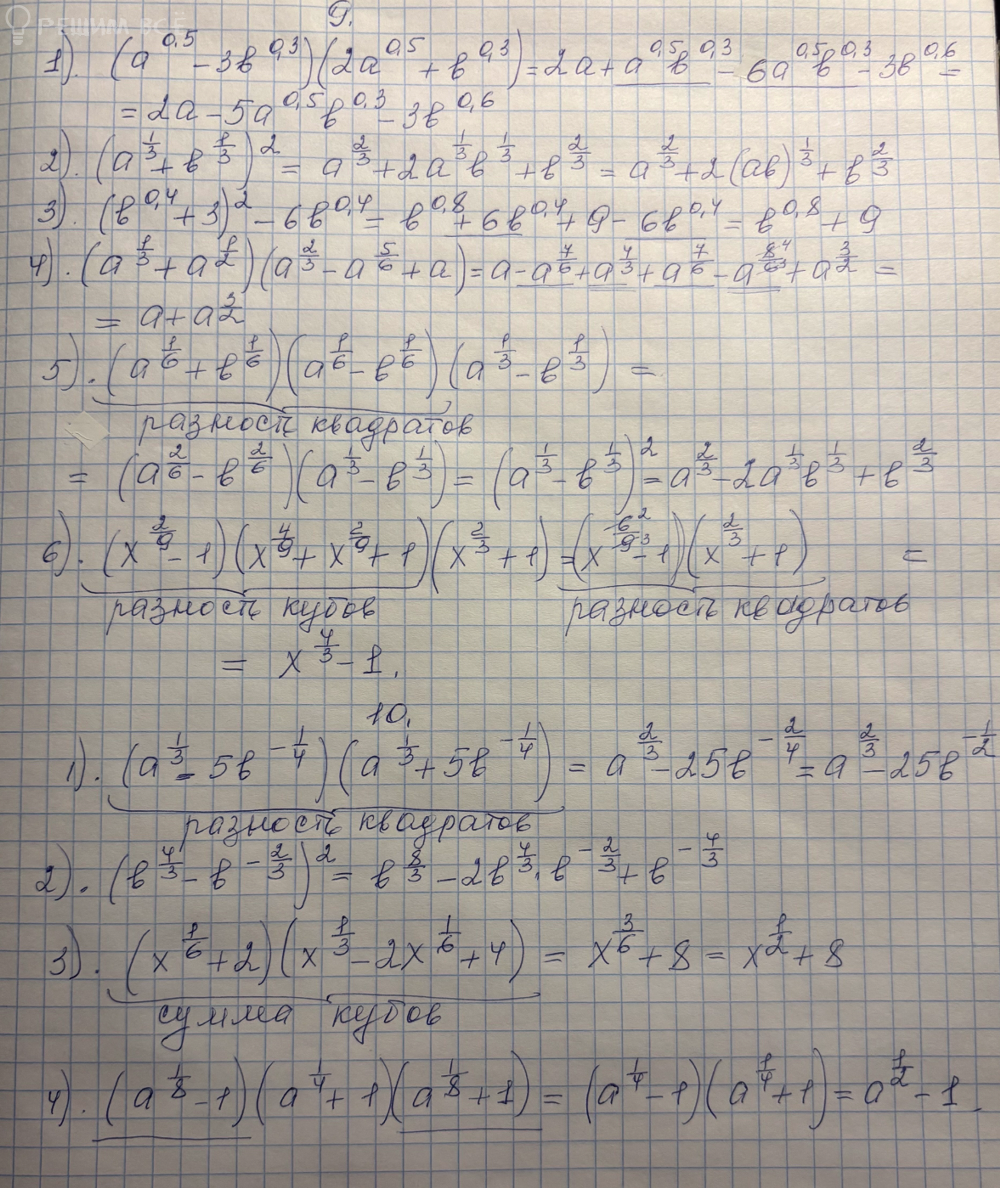 РЕШИМ ВСЁ
9.
1). (a^0,5 - 3b^0,3)(2a^0,5 + b^0,3) = 2a + a^0,5 b^0,3 - 6a^0,5 b^0,3 - 3b^0,6 =
= 2a - 5a^0,5 b^0,3 - 3b^0,6
2). (a^1/3 + b^1/3)^2 = a^2/3 + 2a^1/3 b^1/3 + b^2/3 = a^2/3 + 2(ab)^1/3 + b^2/3
3). (b^0,4 + 3)^2 - 6b^0,4 = b^0,8 + 6b^0,4 + 9 - 6b^0,4 = b^0,8 + 9
4). (a^1/3 + a^1/2)(a^2/3 - a^5/6 + a) = a - a^7/6 + a^4/3 + a^7/6 - a^8/6 4/3 + a^3/2 =
= a + a^3/2
5). (a^1/6 + b^1/6)(a^1/6 - b^1/6)(a^1/3 - b^1/3) =
разность квадратов
= (a^2/6 - b^2/6)(a^1/3 - b^1/3) = (a^1/3 - b^1/3)^2 = a^2/3 - 2a^1/3 b^1/3 + b^2/3
6). (x^2/9 - 1)(x^4/9 + x^2/9 + 1)(x^2/3 + 1) = (x^6/9 2/3 - 1)(x^2/3 + 1) =
разность кубов разность квадратов
= x^4/3 - 1.
10.
1). (a^1/3 - 5b^-1/4)(a^1/3 + 5b^-1/4) = a^2/3 - 25b^-2/4 = a^2/3 - 25b^-1/2
разность квадратов
2). (b^4/3 - b^-2/3)^2 = b^8/3 - 2b^4/3 · b^-2/3 + b^-4/3
3). (x^1/6 + 2)(x^1/3 - 2x^1/6 + 4) = x^3/6 + 8 = x^1/2 + 8
сумма кубов
4). (a^1/8 - 1)(a^1/4 + 1)(a^1/8 + 1) = (a^1/4 - 1)(a^1/4 + 1) = a^1/2 - 1.